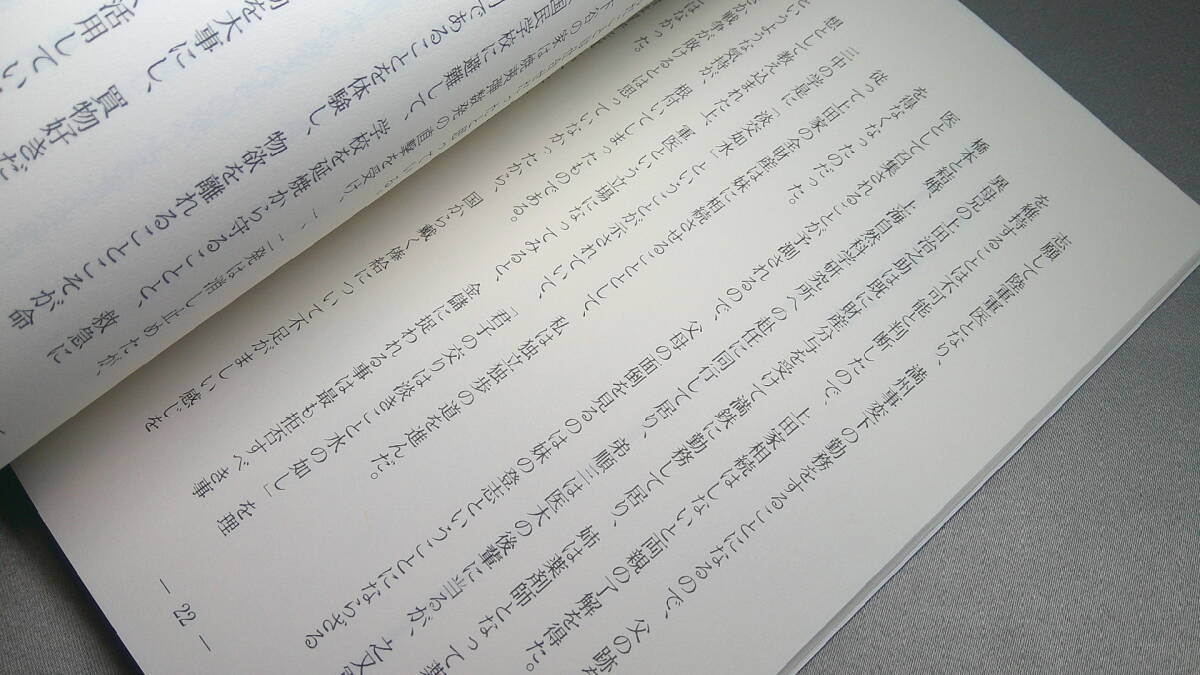 志願して陸軍軍医となり、満州事変下の勤務をすることになるので、父の跡
を維持することは不可能と判断したので、上田家相続はしないと両親の了解を得た。
異母兄の上田治之助は既に財産分与を受けて満鉄に勤務して居り、姉は薬剤師となって薬
橋本と結婚、上海自然科学研究所への赴任に同行して居り、弟順三は医大の後輩に当るが、之又
医として召集されることが予測されるので、父母の面倒を見るのは妹の登志ということにならざる
を得なくなったのだった。
従って上田家の全財産は妹に相続させることとして、私は独立独歩の道を進んだ。
三中の学是に「淡如水」ということが示されていて、「君子の交りは淡きこと水の如し」を理
想として教え込まれた上、軍医という立場になってみると、金儲に捉われる事は最も拒否すべき事
というような気持が、根付いてしまったものである。国から戴く俸給について不足がましい感じを
か戦争が敗けるとは思っていなかった
はなかった。
— 22 —
の家は焼夷弾数発の直撃を受け、一、二発は消し止めたが、
国民学校に避難して、学校を延焼から守ることと、救急に
であることを体験し、物欲を離れることこそが命
を大事にし、買物好きだ
活用してい